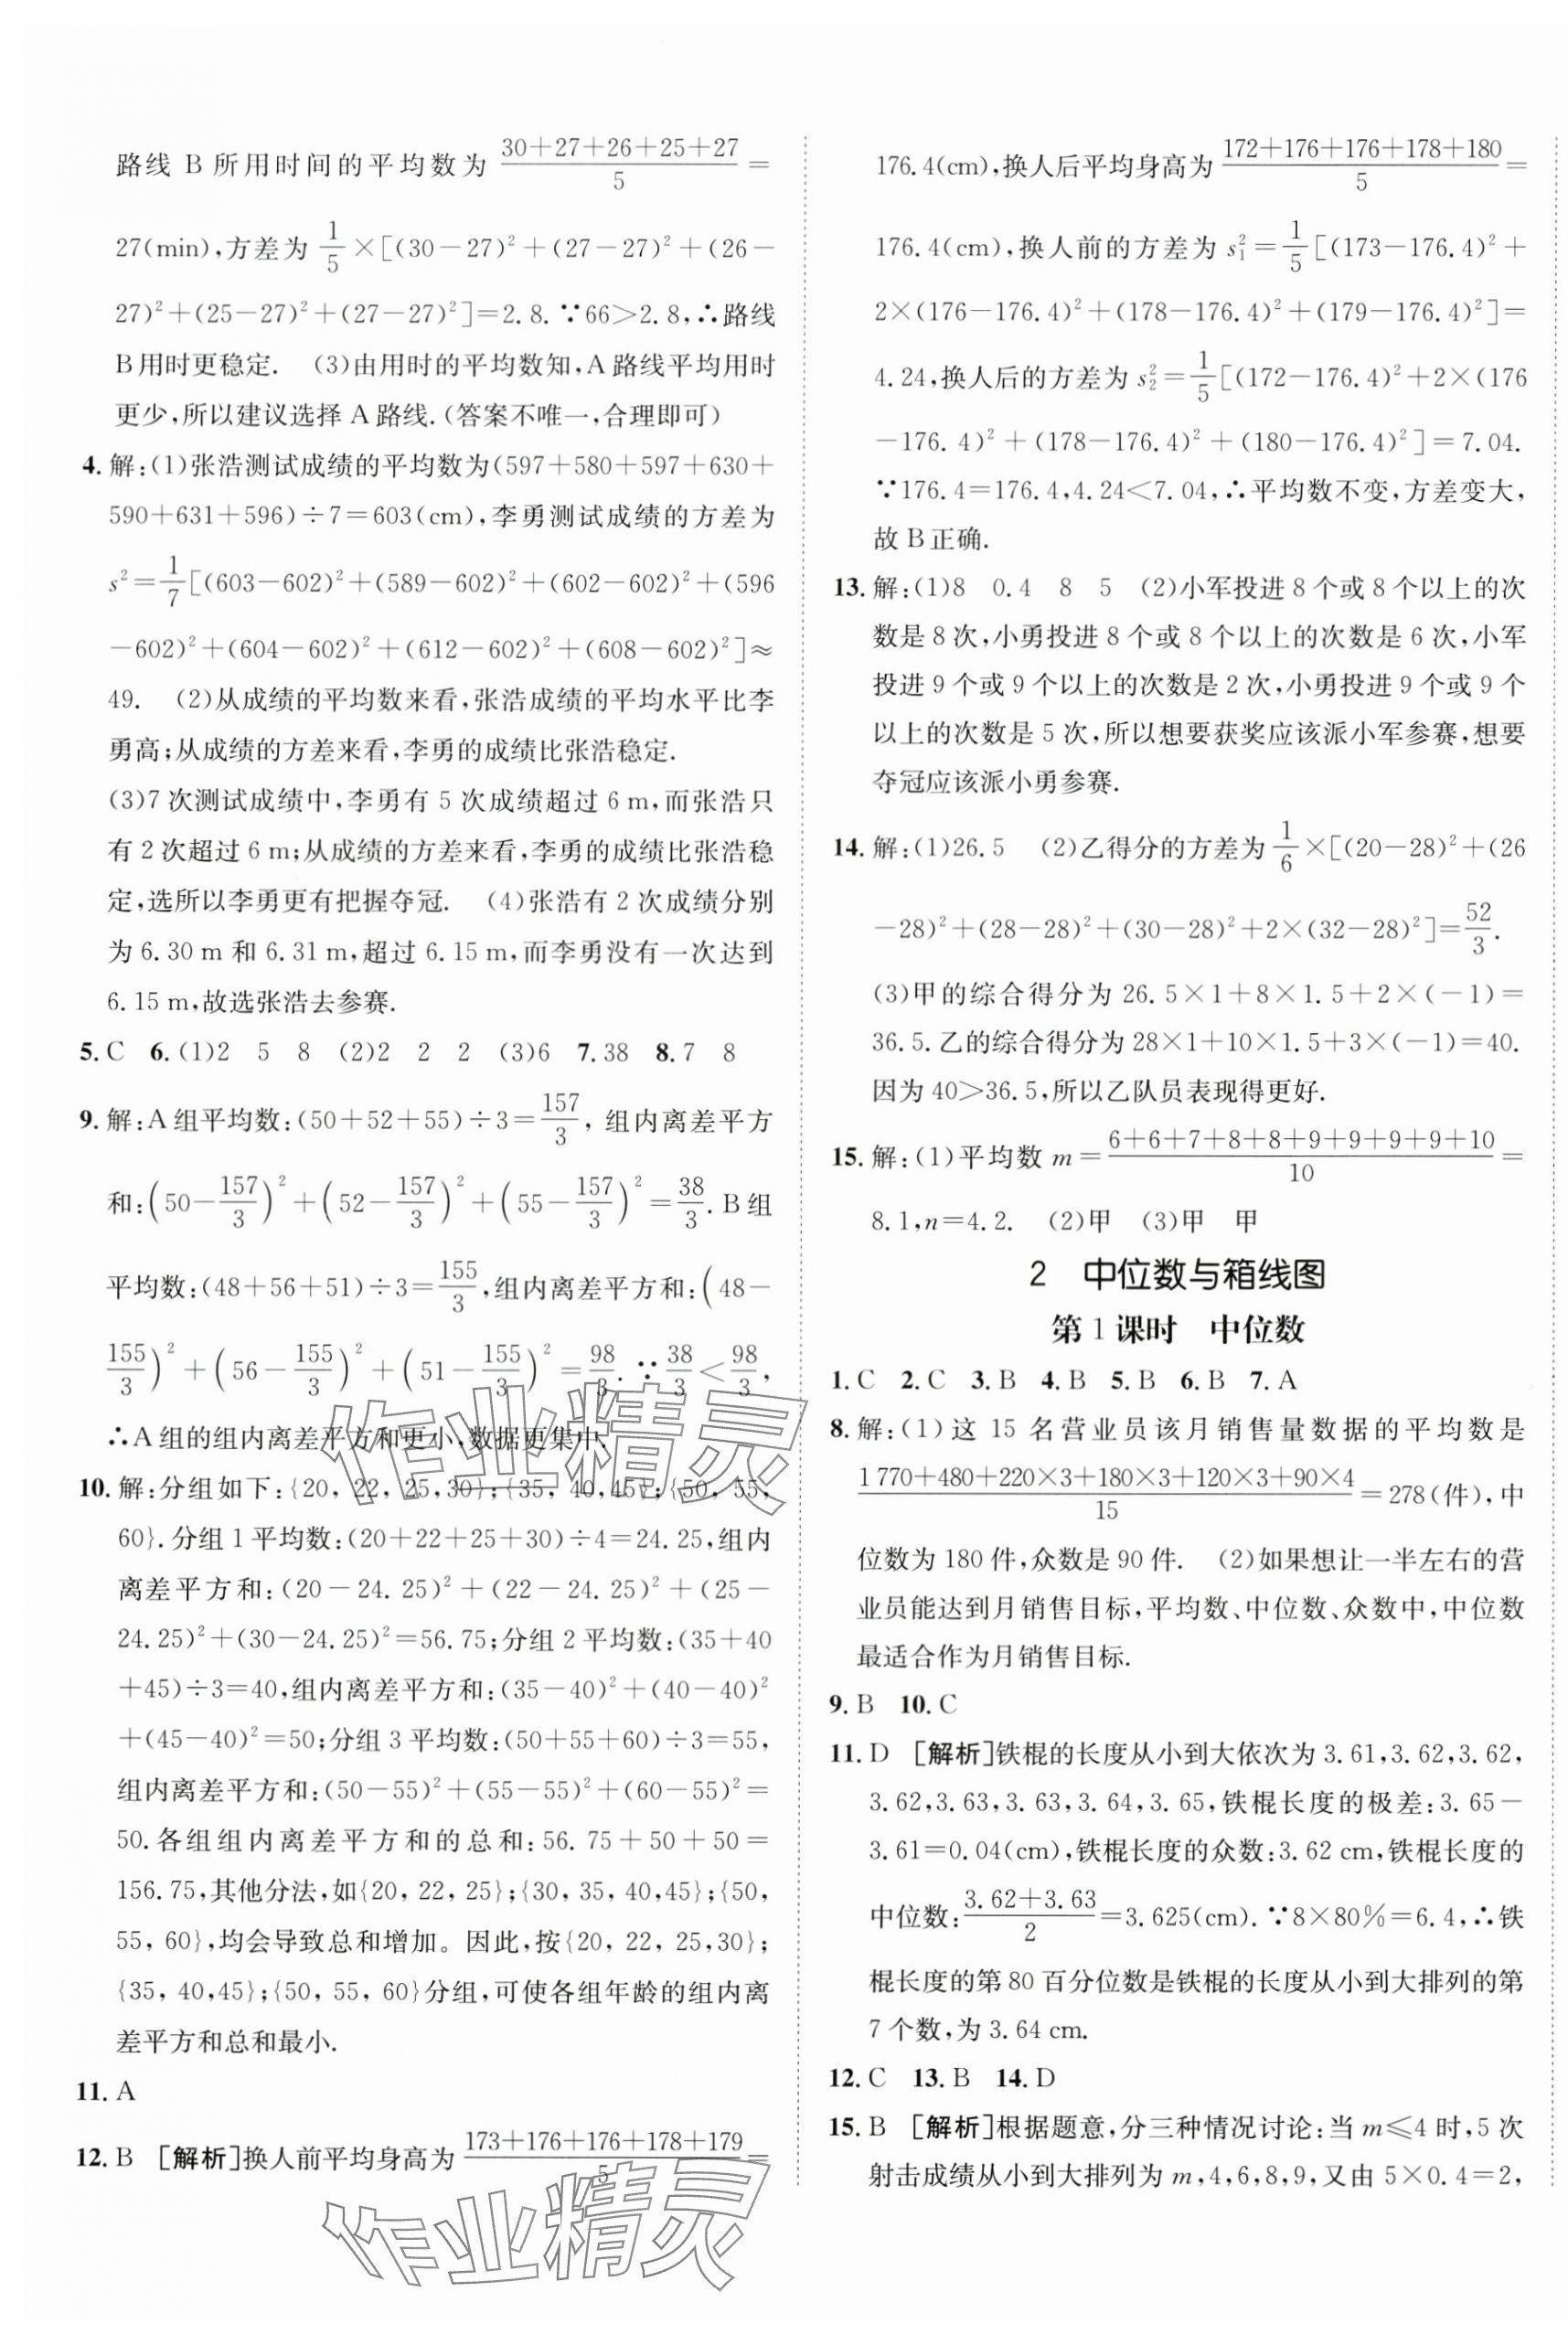 路线 B 所用时间的平均数为 (30+27+26+25+27)/5 =
27(min),方差为 1/5 ×[(30−27)²+(27−27)²+(26−
27)²+(25−27)²+(27−27)²]=2.8.∵66>2.8,∴路线
B用时更稳定. (3)由用时的平均数知,A路线平均用时
更少,所以建议选择A路线.(答案不唯一,合理即可)
4. 解:(1)张浩测试成绩的平均数为(597+580+597+630+
590+631+596)÷7=603(cm),李勇测试成绩的方差为
s²=1/7[(603−602)²+(589−602)²+(602−602)²+(596
−602)²+(604−602)²+(612−602)²+(608−602)²]≈
49. (2)从成绩的平均数来看,张浩成绩的平均水平比李
勇高;从成绩的方差来看,李勇的成绩比张浩稳定.
(3)7次测试成绩中,李勇有5次成绩超过6 m,而张浩只
有2次超过6 m;从成绩的方差来看,李勇的成绩比张浩稳
定,选所以李勇更有把握夺冠. (4)张浩有2次成绩分别
为6.30 m和6.31 m,超过6.15 m,而李勇没有一次达到
6.15 m,故选张浩去参赛.
5. C 6. (1)2 5 8 (2)2 2 2 (3)6 7. 38 8. 7 8
9. 解:A组平均数:(50+52+55)÷3=157/3,组内离差平方
和:(50−157/3)²+(52−157/3)²+(55−157/3)²=38/3.B组
平均数:(48+56+51)÷3=155/3,组内离差平方和:(48−
155/3)²+(56−155/3)²+(51−155/3)²=98/3.∵38/3<98/3,
∴A组的组内离差平方和更小,数据更集中.
10. 解:分组如下:{20, 22, 25,30};{35, 40,45};{50, 55,
60}.分组1平均数:(20+22+25+30)÷4=24.25,组内
离差平方和:(20−24.25)²+(22−24.25)²+(25−
24.25)²+(30−24.25)²=56.75;分组2平均数:(35+40
+45)÷3=40,组内离差平方和:(35−40)²+(40−40)²
+(45−40)²=50;分组3平均数:(50+55+60)÷3=55,
组内离差平方和:(50−55)²+(55−55)²+(60−55)²=
50.各组组内离差平方和的总和:56.75+50+50=
156.75,其他分法,如{20, 22, 25};{30, 35, 40,45};{50,
55, 60},均会导致总和增加。因此,按{20, 22, 25,30};
{35, 40,45};{50, 55, 60}分组,可使各组年龄的组内离
差平方和总和最小.
11. A
12. B [解析]换人前平均身高为 (173+176+176+178+179)/5 =
176.4(cm),换人后平均身高为 (172+176+176+178+180)/5 =
176.4(cm),换人前的方差为 s₁²=1/5[(173−176.4)²+
2×(176−176.4)²+(178−176.4)²+(179−176.4)²]=
4.24,换人后的方差为 s₂²=1/5[(172−176.4)²+2×(176
−176.4)²+(178−176.4)²+(180−176.4)²]=7.04.
∵176.4=176.4,4.24<7.04,∴平均数不变,方差变大,
故B正确.
13. 解:(1)8 0.4 8 5 (2)小军投进8个或8个以上的次
数是8次,小勇投进8个或8个以上的次数是6次,小军
投进9个或9个以上的次数是2次,小勇投进9个或9个
以上的次数是5次,所以想要获奖应该派小军参赛,想要
夺冠应该派小勇参赛.
14. 解:(1)26.5 (2)乙得分的方差为 1/6 ×[(20−28)²+(26
−28)²+(28−28)²+(30−28)²+2×(32−28)²]=52/3.
(3)甲的综合得分为26.5×1+8×1.5+2×(−1)=
36.5.乙的综合得分为28×1+10×1.5+3×(−1)=40.
因为40>36.5,所以乙队员表现得更好.
15. 解:(1)平均数 m=(6+6+7+8+8+9+9+9+9+10)/10=
8.1,n=4.2. (2)甲 (3)甲 甲
2 中位数与箱线图
第1课时 中位数
1. C 2. C 3. B 4. B 5. B 6. B 7. A
8. 解:(1)这15名营业员该月销售量数据的平均数是
(1 770+480+220×3+180×3+120×3+90×4)/15=278(件),中
位数为180件,众数是90件. (2)如果想让一半左右的营
业员能达到月销售目标,平均数、中位数、众数中,中位数
最适合作为月销售目标.
9. B 10. C
11. D [解析]铁棍的长度从小到大依次为3.61,3.62,3.62,
3.62,3.63,3.63,3.64,3.65,铁棍长度的极差:3.65−
3.61=0.04(cm),铁棍长度的众数:3.62 cm,铁棍长度的
中位数:(3.62+3.63)/2=3.625(cm).∵8×80%=6.4,∴铁
棍长度的第80百分位数是铁棍的长度从小到大排列的第
7个数,为3.64 cm.
12. C 13. B 14. D
15. B [解析]根据题意,分三种情况讨论:当m≤4时,5次
射击成绩从小到大排列为m,4,6,8,9,又由5×0.4=2,
作业精灵
作业精灵